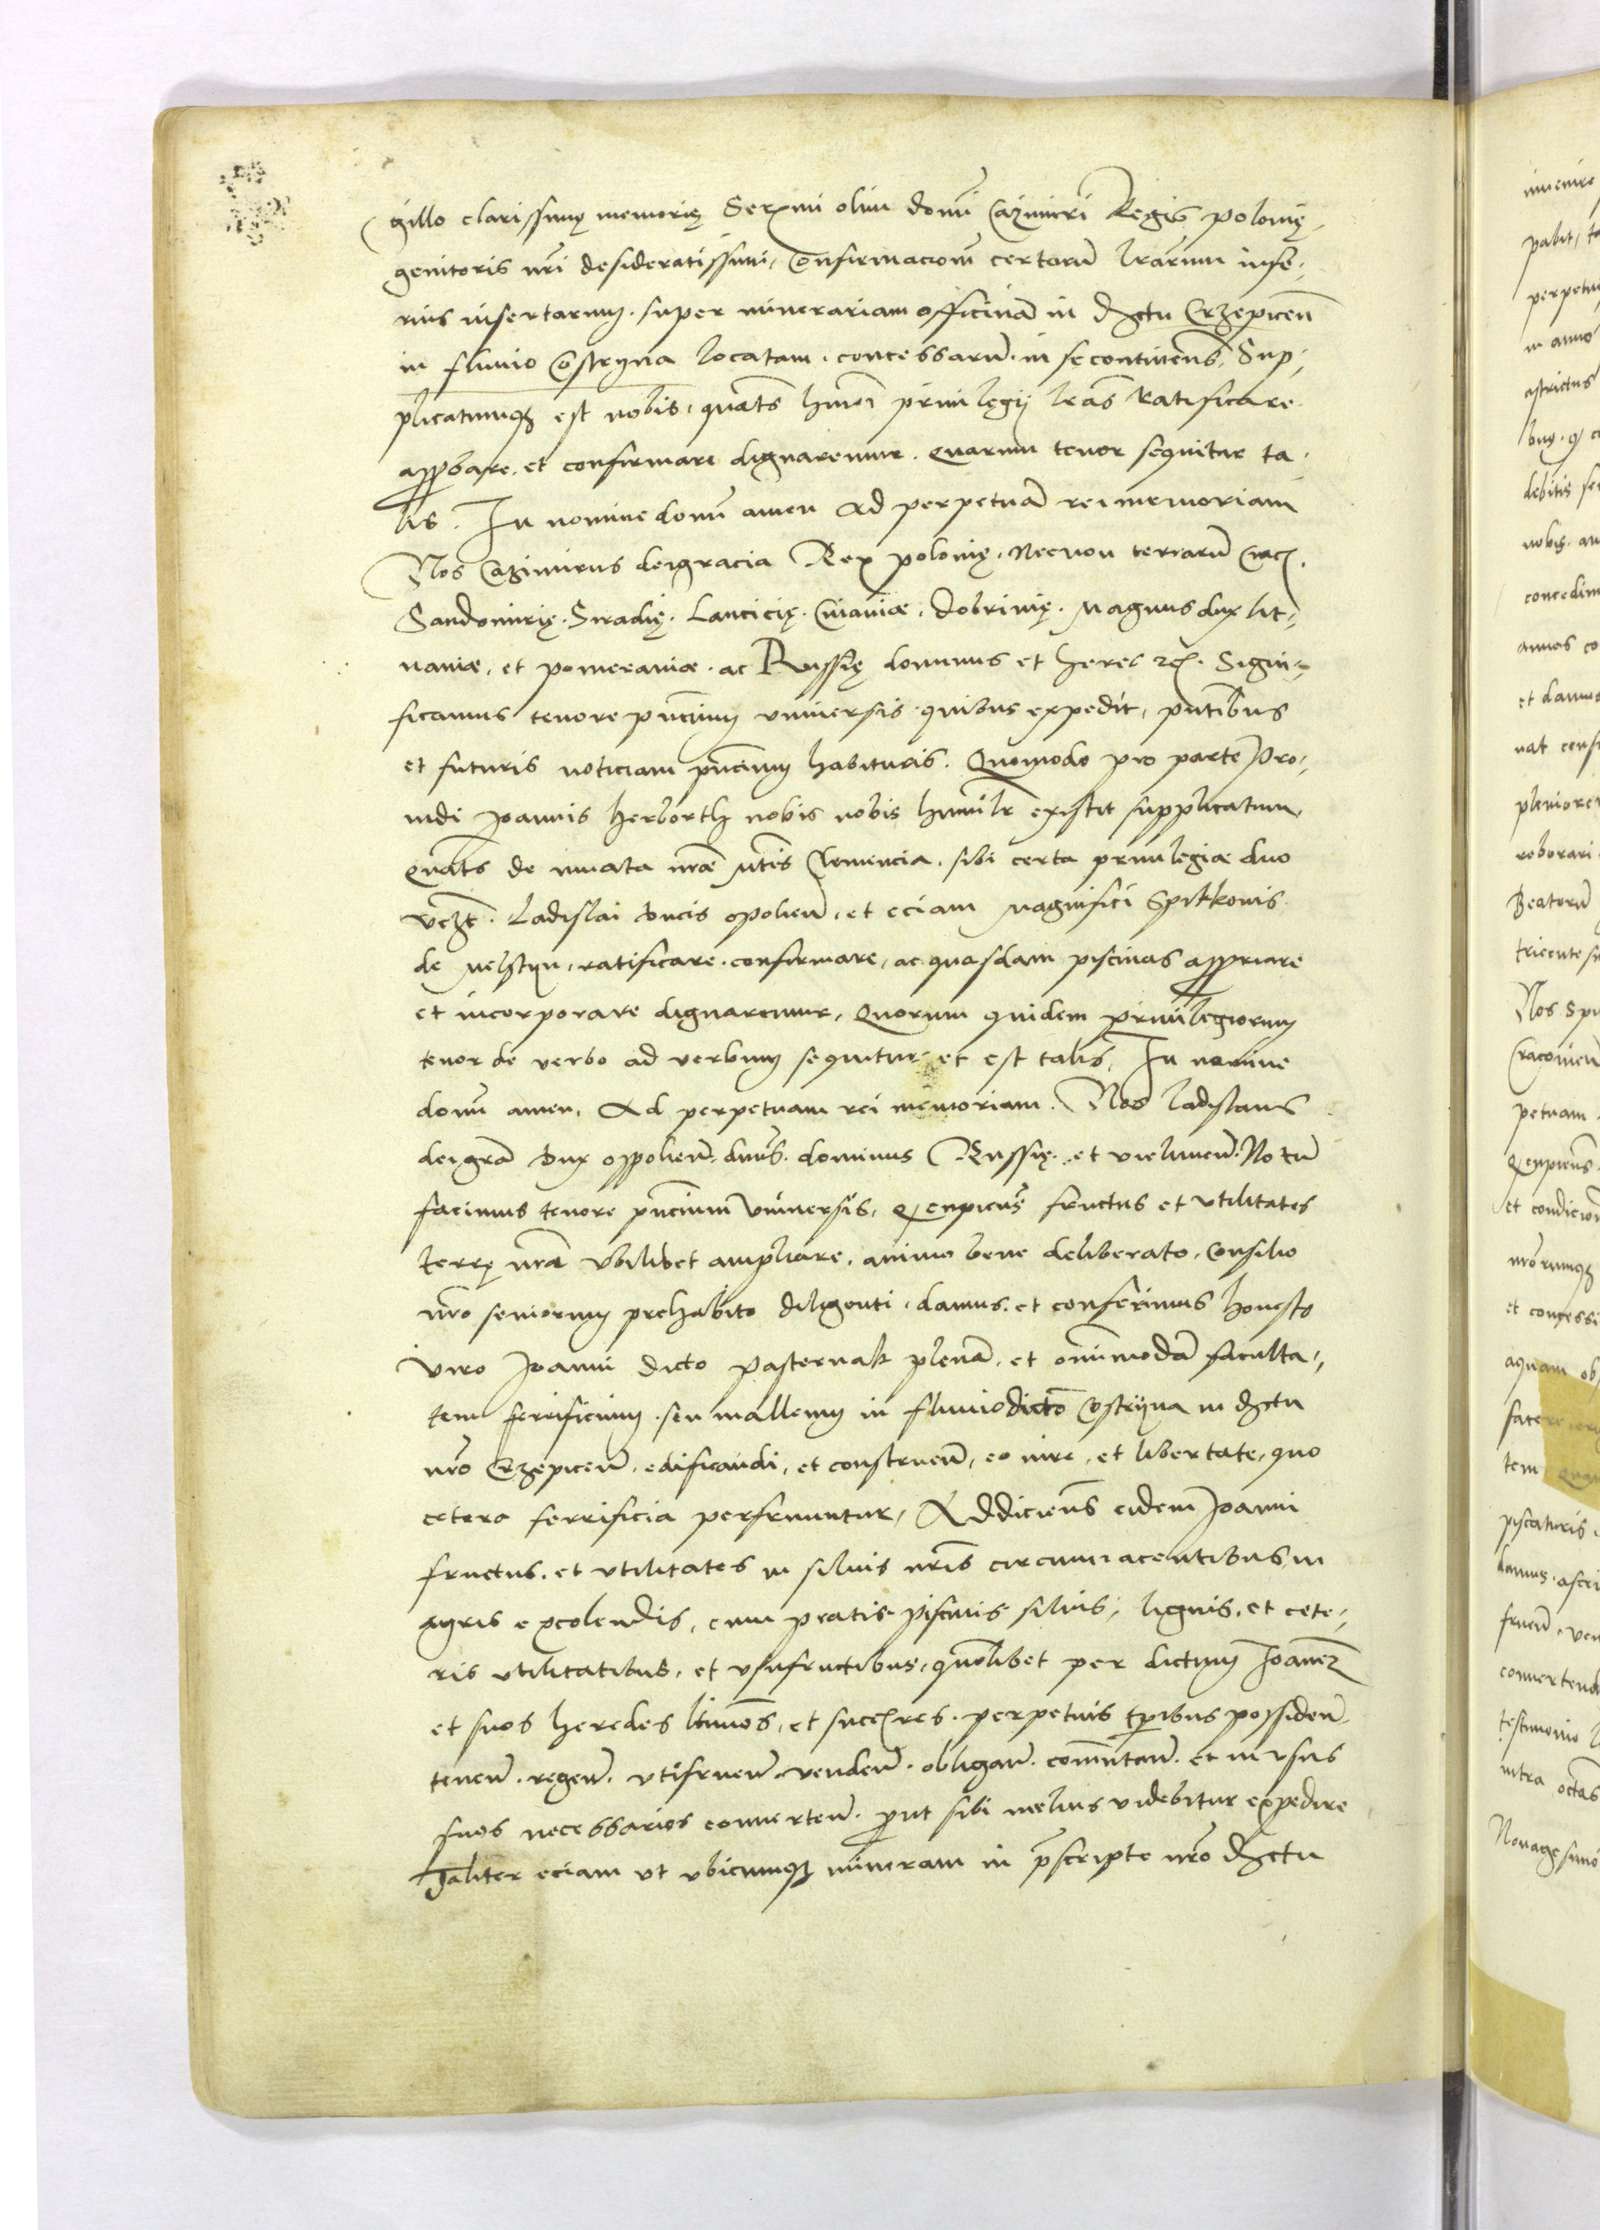 gillo clarissimę memorię Serenmi olim domi Cazimiri Regis polonię,
genitoris nri desideratissimi, Confirmacionem certarum lrarum infe,
rius insertarum, super minerariam officinam in dictu Crzepicen
in fluvio Ostryna locatam, concessarum, in se continens, Sup,
plicatumq3 est nobis, quats hmoi privilegij lras Ratificare
approbare, et confirmare dignaremur, Quarum tenor sequitur ta,
lis. In nomine domi amen Ad perpetuam rei memoriam
Nos Cazimirus dei gracia Rex polonię, Necnon terrarum Crac,
Sandomirię, Siradię, Lancicię, Cuiaviæ, Dobrinię, Magnus dux lit,
uaniæ, et pomeraniæ, ac Russię dominus et heres etc. Signi,
ficamus tenore pncium vniversis quibus expedit, pntibus
et futuris noticiam pncium habituris. Quomodo pro parte Pro,
uidi Joannis Herborth nobis nobis humilr existit supplicatum,
Quats de innata nræ mtis clemencia, sibi certa privilegia duo
vcz. Ladislai Ducis opolien, et eciam Magnifici Spitkonis
de Melstyn, ratificare, confirmare, ac quasdam piscinas appriare
et incorporare dignaremur, Quorum quidem privilegiorum
tenor de verbo ad verbum sequitur et est talis, In nomine
domi amen, Ad perpetuam rei memoriam. Nos ladislaus
dei gra Dux oppolien, dnus. dominus Russię, et vielunen. Notum
facimus tenore pncium vniversis, Q cupiens fructus et vtilitates
terrę nræ vbilibet ampliare, animo bene deliberato, Consilio
nro seniorum prehabito diligenti, damus, et conferimus honesto
viro Joanni dicto Pasternak plenam, et omnimodam faculta,
tem ferrificium, seu malleum in fluvio dicto Ostryna in dictu
nro Crzepicen, edificandi, et construen, eo iure, et libertate, quo
cetera ferrificia perfruuntur, Addiciens eidem Joanni
fructus, et vtilitates in siluis nris circumiacentibus, in
agris excolendis, cum pratis, piscinis, siluis, lignis, et cete,
ris vtilitatibus, et vsufructibus, quolibet per dictum Joannem
et suos heredes ltimos, et succres, perpetuis tpibus possiden,
tenen, regen, vtifruen, venden, obligan, commutan, et in vsus
suos necessarios conuerten, prout sibi melius videbitur expedire
Taliter eciam vt vbicumq3 mineram in pscripto nro dictu